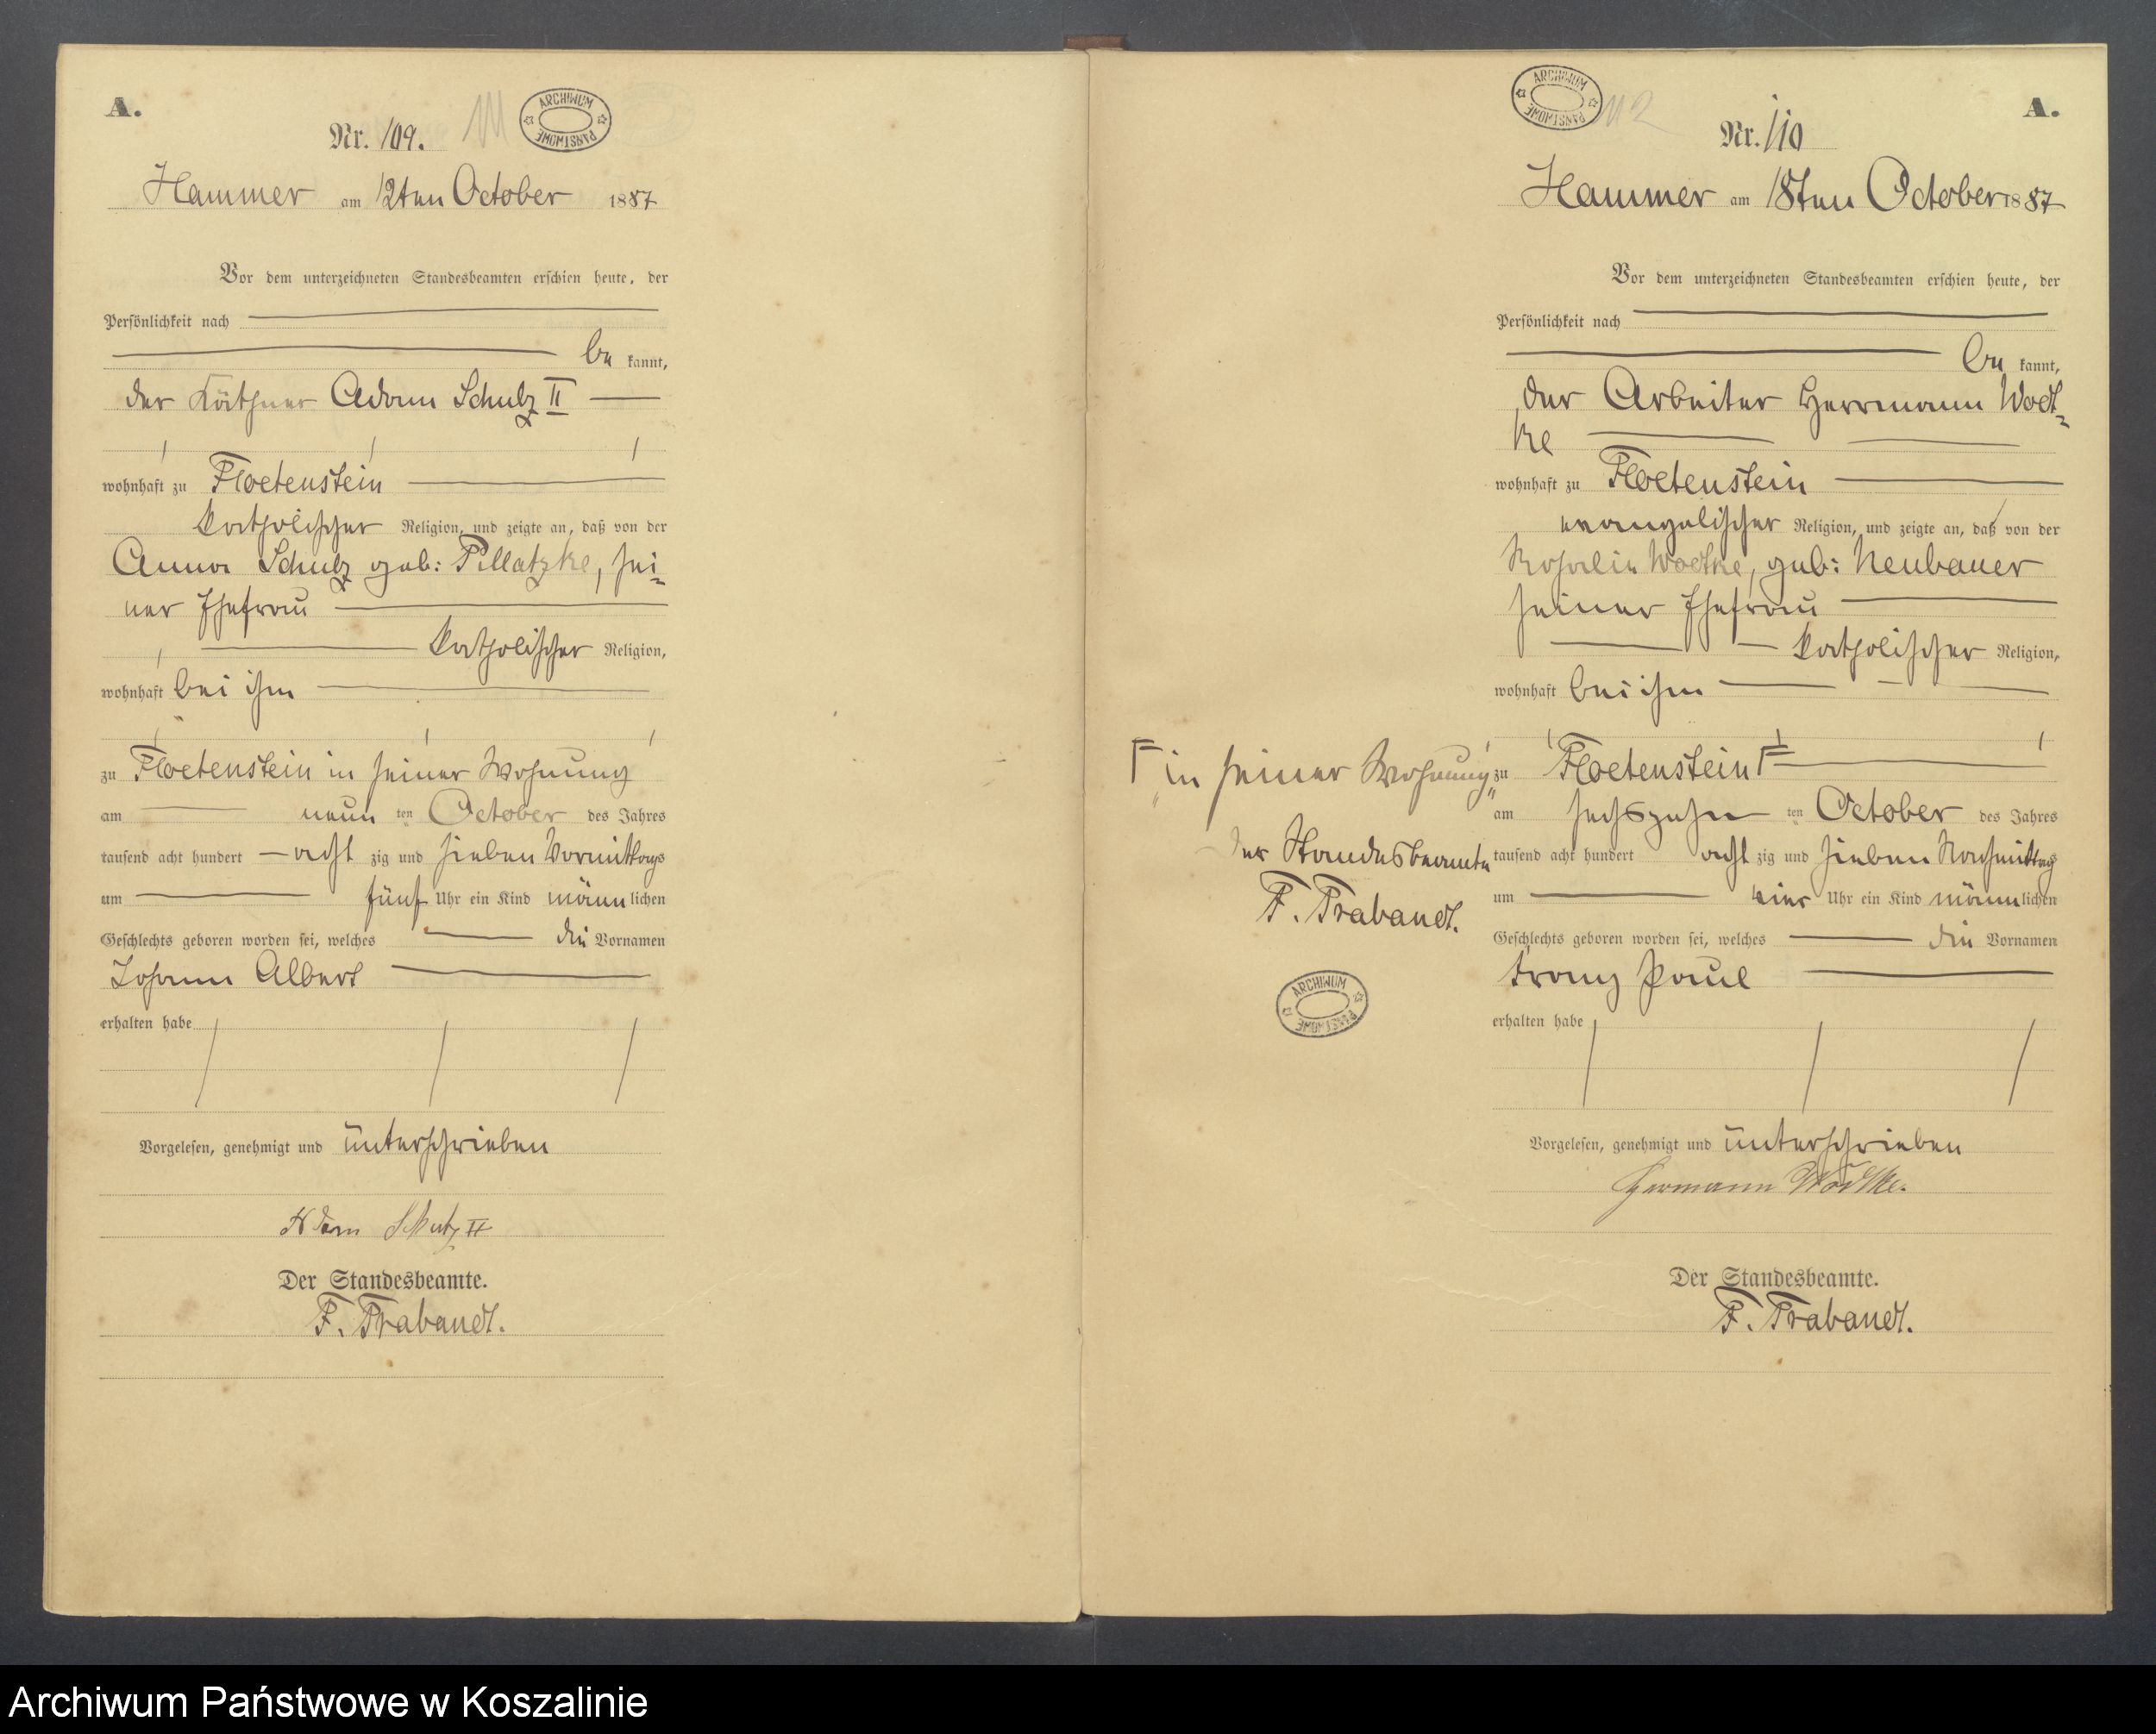 A.
Nr. 109.
111
ARCHIWUM PAŃSTWOWE
Hammer am 12ten October 1887
Vor dem unterzeichneten Standesbeamten erschien heute, der
Persönlichkeit nach
be kannt,
der Käthner Adam Schulz II
wohnhaft zu Floetenstein
katholischer Religion, und zeigte an, daß von der
Anna Schulz geb: Pillatzke, sei-
ner Ehefrau
katholischer Religion,
wohnhaft bei ihm
zu Floetenstein in seiner Wohnung
am neun ten October des Jahres
tausend acht hundert acht zig und sieben Vormittags
um fünf Uhr ein Kind männlichen
Geschlechts geboren worden sei, welches die Vornamen
Johann Albert
erhalten habe
Vorgelesen, genehmigt und unterschrieben
Adam Schulz II
Der Standesbeamte.
F. Trabandt.
ARCHIWUM PAŃSTWOWE
112
A.
Nr. 110
Hammer am 18ten October 1887
Vor dem unterzeichneten Standesbeamten erschien heute, der
Persönlichkeit nach
be kannt,
der Arbeiter Herrmann Woet-
ke
wohnhaft zu Floetenstein
evangelischer Religion, und zeigte an, daß von der
Rosalie Woetke, geb: Neubauer
seiner Ehefrau
katholischer Religion,
wohnhaft bei ihm
zu Floetenstein F
am sechszehn ten October des Jahres
tausend acht hundert acht zig und sieben Nachmittags
um vier Uhr ein Kind männlichen
Geschlechts geboren worden sei, welches die Vornamen
Franz Paul
erhalten habe
Vorgelesen, genehmigt und unterschrieben
Hermann
Der Standesbeamte.
F. Trabandt.
F "in seiner Wohnung"
Der Standesbeamte
F. Trabandt.
ARCHIWUM PAŃSTWOWE
Archiwum Państwowe w Koszalinie